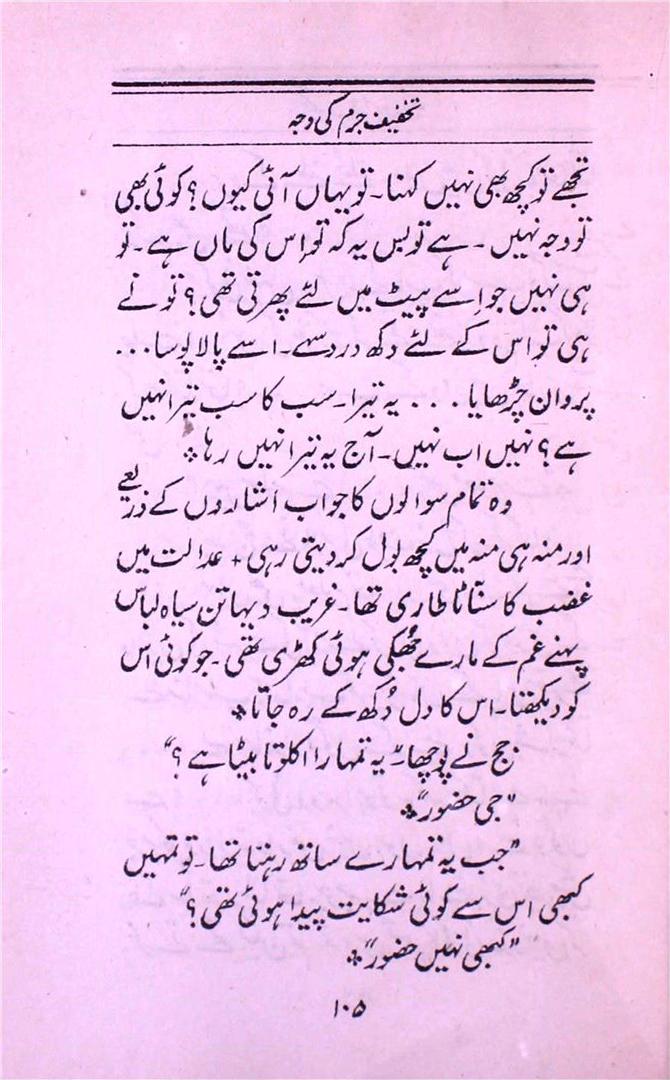 تخفیف جرم کی وجہ
تجھے تو کچھ بھی نہیں کہنا۔ تو یہاں آئی کیوں؟ کوئی بھی
تو وجہ نہیں۔ ہے تو بس یہ کہ تو اس کی ماں ہے۔ تو
ہی نہیں جو اِسے پیٹ میں لئے پھرتی تھی؟ تو نے
ہی تو اس کے لئے دکھ درد سہے۔ اسے پالا پوسا...
پروان چڑھایا... یہ تیرا۔ سب کا سب تیرا نہیں
ہے؟ نہیں اب نہیں۔ آج یہ تیرا نہیں رہا *
وہ تمام سوالوں کا جواب اشاروں کے ذریعے
اور منہ ہی منہ میں کچھ بول کر دیتی رہی + عدالت میں
غضب کا سنّاٹا طاری تھا۔ غریب دیہاتن سیاہ لباس
پہنے غم کے مارے جُھکی ہوئی کھڑی تھی۔ جو کوئی اس
کو دیکھتا۔ اس کا دل دُکھ کے رہ جاتا *
جج نے پوچھا۔ "یہ تمہارا اکلوتا بیٹا ہے؟"
"جی حضور" *
"جب یہ تمہارے ساتھ رہتا تھا۔ تو تمہیں
کبھی اس سے کوئی شکایت پیدا ہوئی تھی؟"
"کبھی نہیں حضور" *
۱۰۵